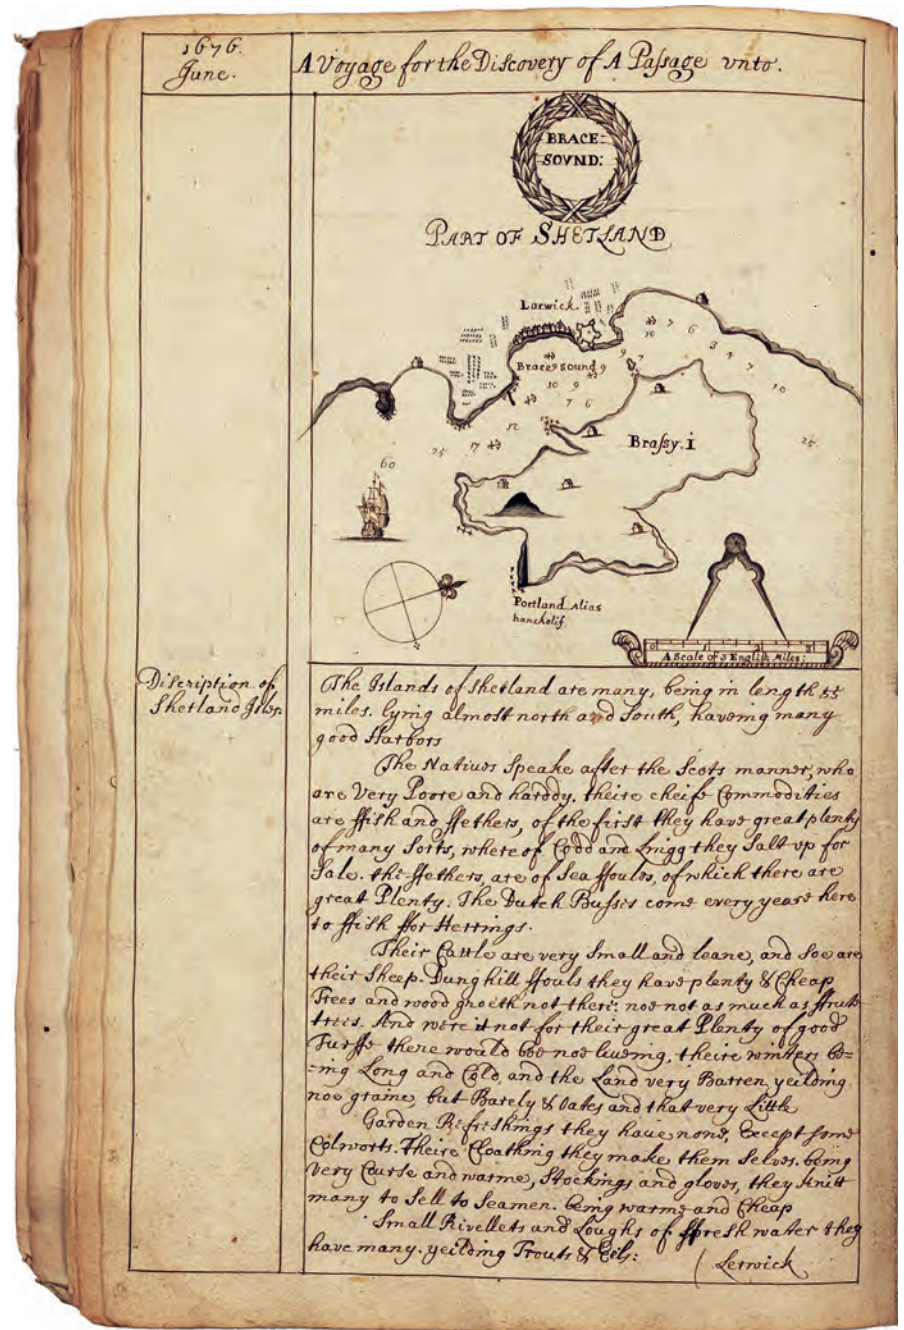 1676.
June.
A Voyage for the Discovery of A Paſsage vnto.
BRACE-
SOVND:
PART OF SHETLAND
Lorwick.
Brace sound
Braſsy. i
10
7
6
3
4
7
10
25
9
9
7
10
9
7
6
12
17
25
60
Portland Alias
hanckelif
0 1 2 3
A Scale of 3 English Miles:
Discription of
Shetland Isles
The Islands of Shetland are many, being in length 55
miles. lying almost north and South, haveing many
good Harbors
The Natives Speake after the Scots manner, who
are Very Poore and harddy. theire cheife Commodities
are ffish and ffethers, of the first they have great plenty
of many Sorts, where of Codd and Lnigg they Salt vp for
Sale. the ffethers are of Sea ffoules, of which there are
great Plenty. The Dutch Busses come every yeare here
to ffish ffor Herrings.
Their Cattle are very Small and leane, and Soe are
their Sheep. Dunghill ffouls they have plenty & Cheap
Trees and wood groeth not there: noe not as much as ffrute
trees. And were it not for their great Plenty of good
Turffe there would bee noe liueing, theire winters be=
=ing Long and Cold, and the Land very Barren yeilding
noe graine, but Barely & Oates and that very Little
Garden Refreshings they haue none, Except some
Colworts. Theire Cloathing they make them Selves. being
Very Course and warme, Stockings and gloves, they Knitt
many to Sell to Seamen. being warme and Cheap
Small Rivellets and Loughs of ffresh water they
have many. yeilding Trouts & Eels:
(Lerwick